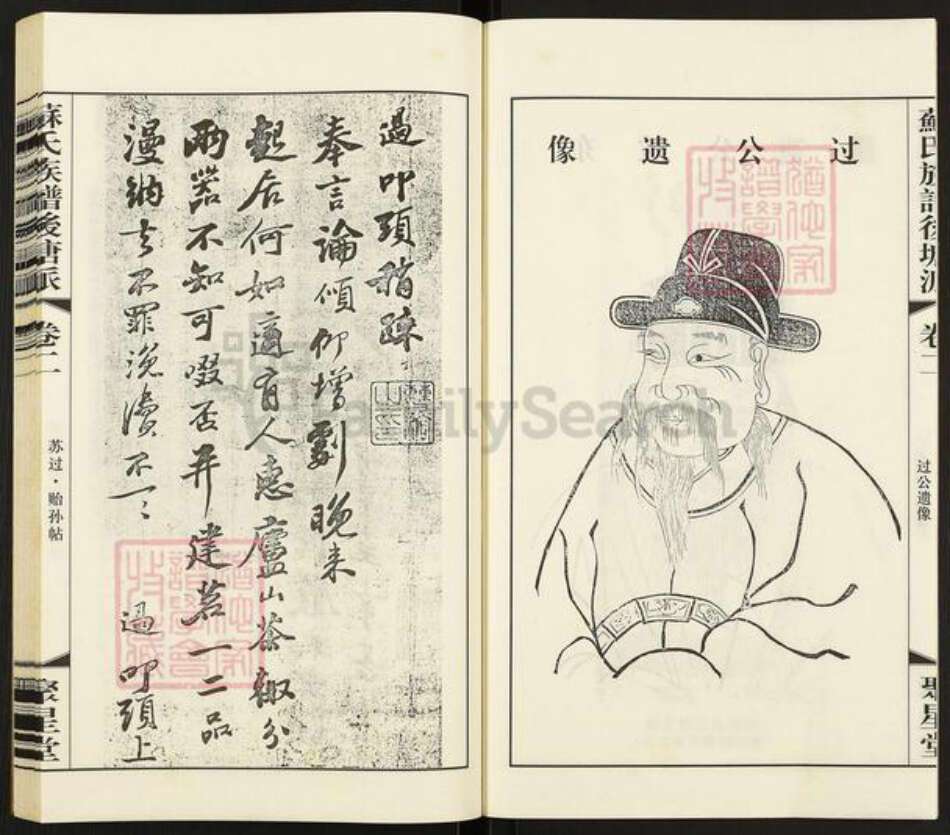 蘇氏族譜後塘派
卷二
过公遗像
聚星堂
过公遗像
FamilySearch
過叩頭稍疎
奉言論傾仰增劇晚来
起居何如適有人惠廬山茶輙分
兩器不知可啜否并建茗一二品
漫納去不罪浼瀆不一〻
過叩頭上
蘇氏族譜後塘派
卷二
苏过·贻孙帖
聚星堂